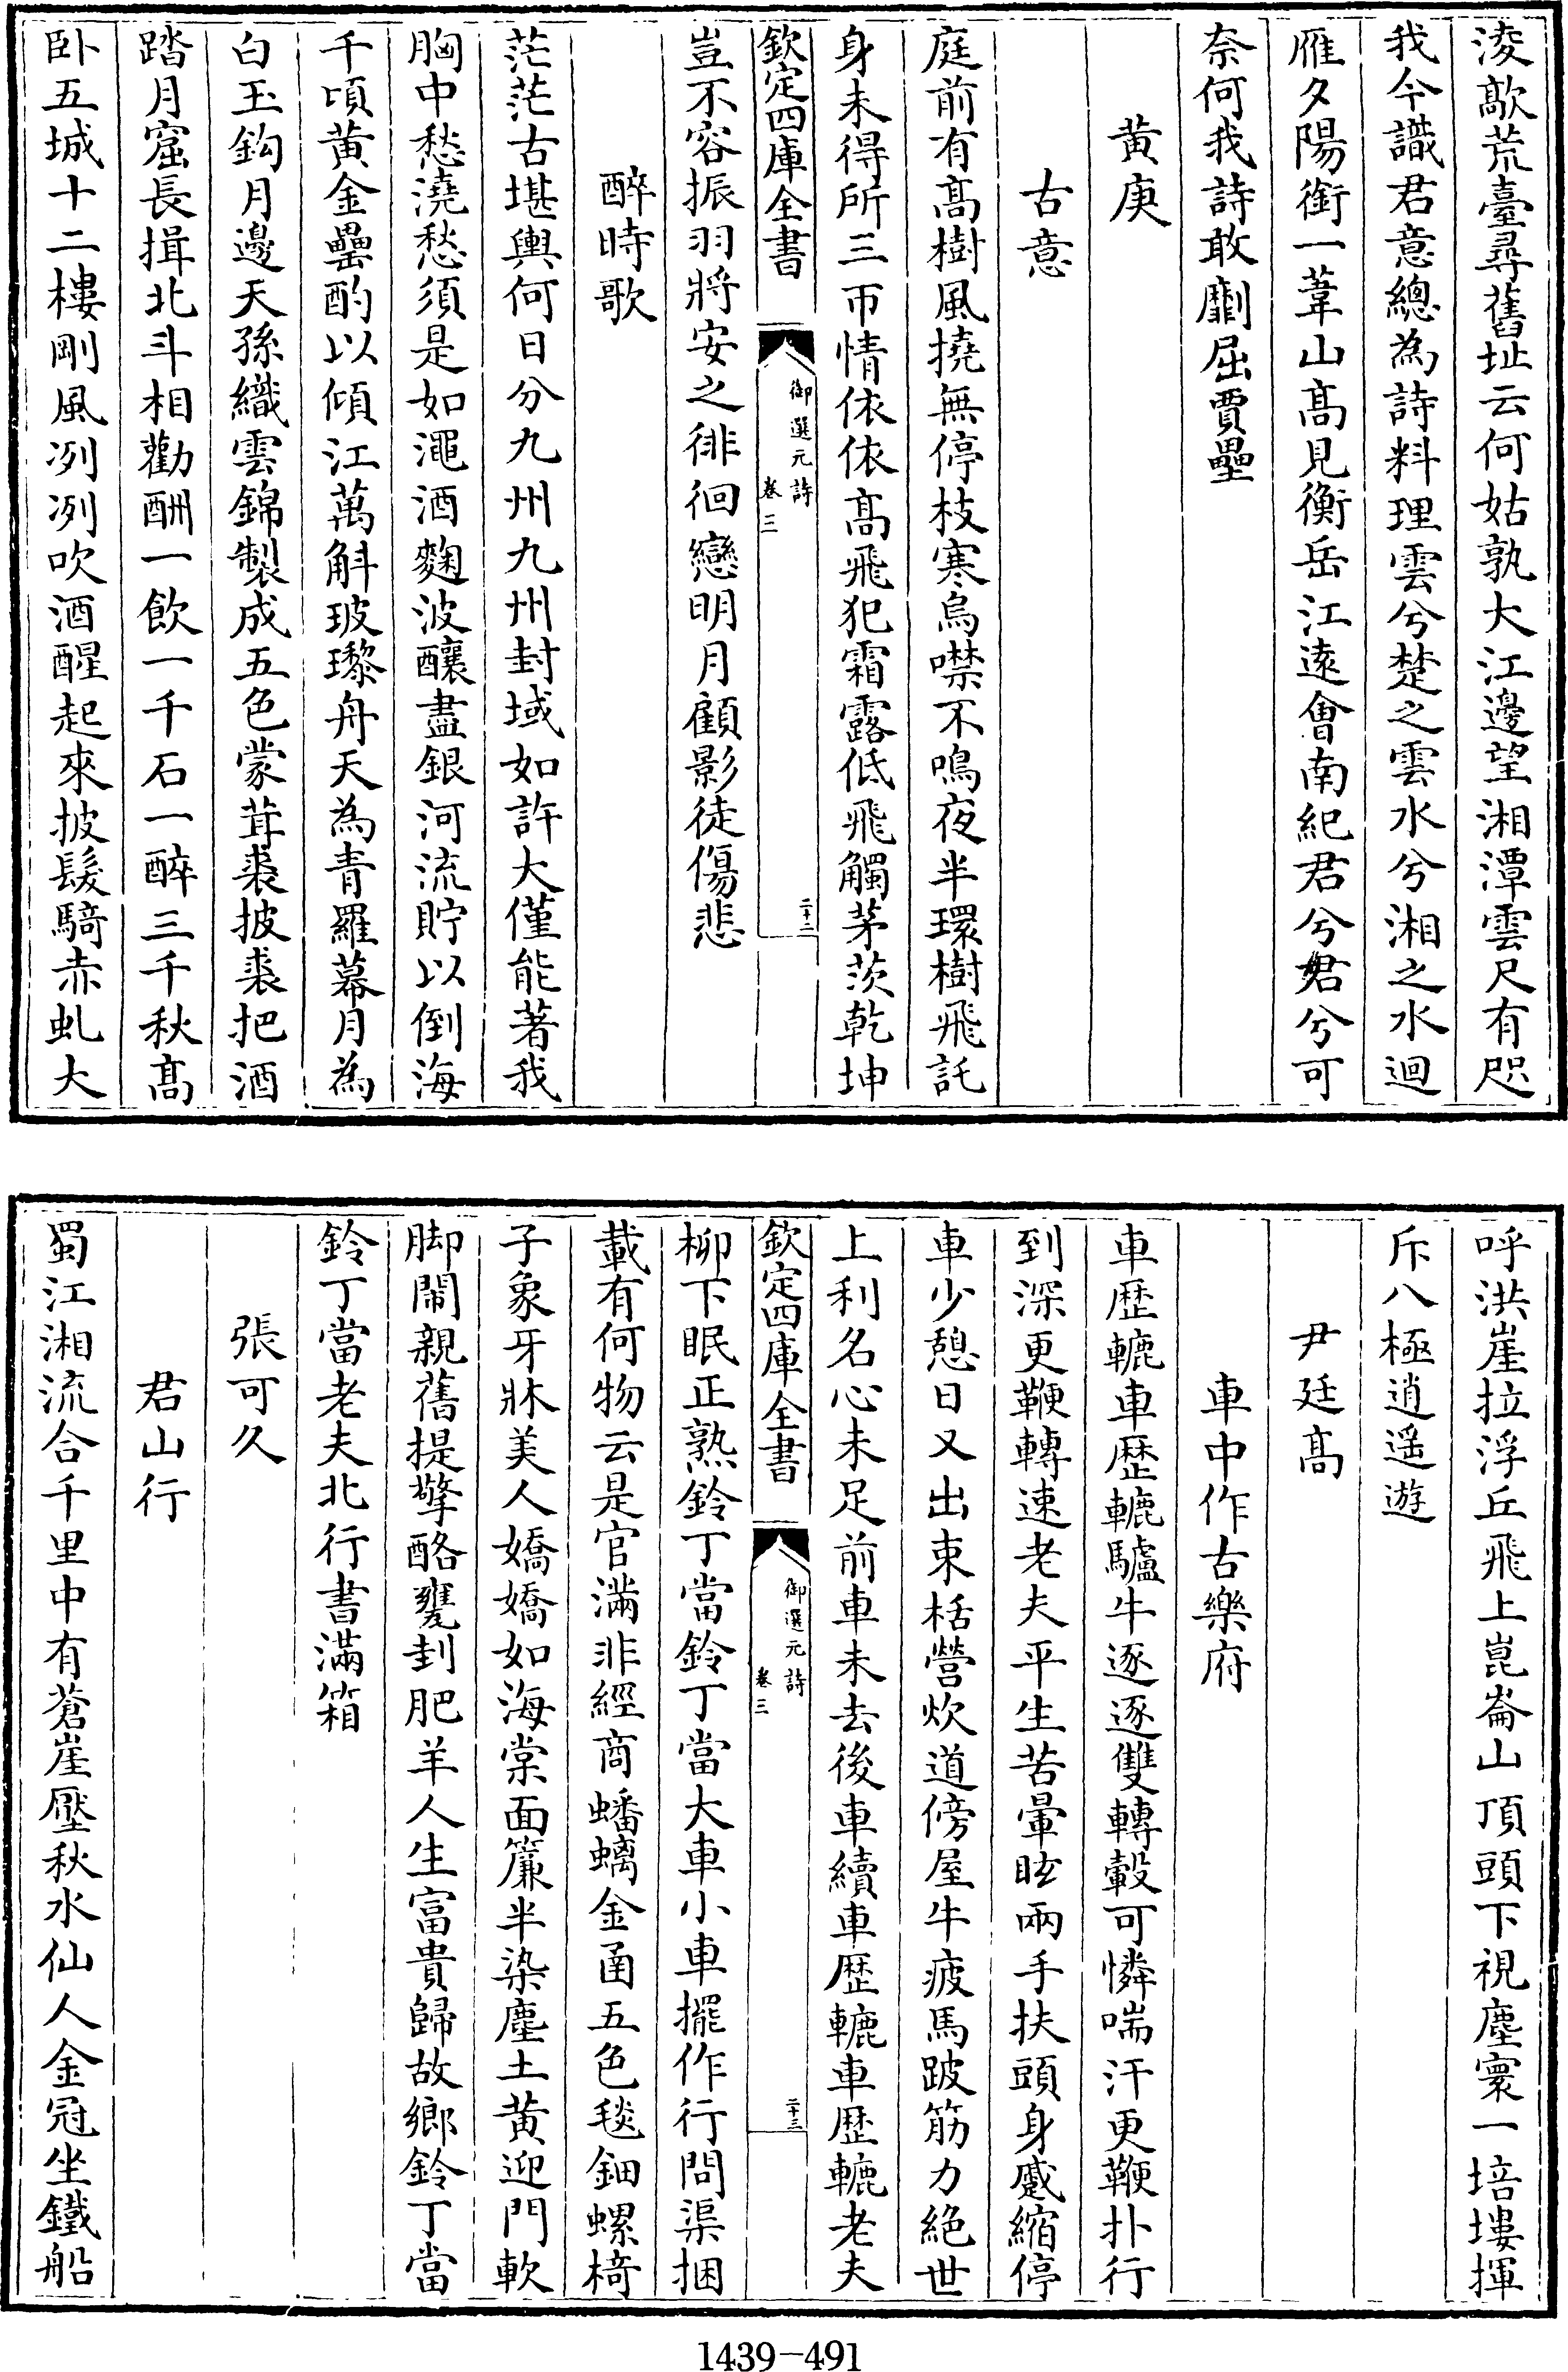 淩歊荒臺尋舊址云何姑孰大江邊望湘潭雲尺有咫
我今識君意總為詩料理雲兮楚之雲水兮湘之水迴
雁夕陽銜一葦山髙見衡岳江逺會南紀君兮君兮可
奈何我詩敢劘屈賈壘
黄庚
古意
庭前有髙樹風撓無停枝寒烏噤不鳴夜半環樹飛託
身未得所三帀情依依髙飛犯霜露低飛觸茅茨乾坤
欽定四庫全書
御選元詩
卷三
二十二
豈不容振羽將安之徘徊戀明月顧影徒傷悲
醉時歌
茫茫古堪輿何日分九州九州封域如許大僅能著我
胸中愁澆愁須是如澠酒麴波釀盡銀河流貯以倒海
千頃黄金罍酌以傾江萬斛玻瓈舟天為青羅幕月為
白玉鈎月邊天孫織雲錦製成五色蒙茸裘披裘把酒
踏月窟長揖北斗相勸酬一飲一千石一醉三千秋髙
卧五城十二樓剛風冽冽吹酒醒起來披髮騎赤虬大
呼洪崖拉浮丘飛上崑崙山頂頭下視塵寰一培塿揮
斥八極逍遥遊
尹廷髙
車中作古樂府
車歷轆車歷轆驢牛逐逐雙轉轂可憐喘汗更鞭扑行
到深更鞭轉速老夫平生苦暈眩兩手扶頭身蹙縮停
車少憩日又出束栝營炊道傍屋牛疲馬跛筋力絶世
上利名心未足前車未去後車續車歷轆車歷轆老夫
欽定四庫全書
御選元詩
卷三
二十三
柳下眠正熟鈴丁當鈴丁當大車小車擺作行問渠捆
載有何物云是官滿非經商蟠螭金函五色毯鈿螺椅
子象牙牀美人嬌嬌如海棠面簾半染塵土黄迎門軟
脚鬧親舊提擎酪甕封肥羊人生富貴歸故鄉鈴丁當
鈴丁當老夫北行書滿箱
張可久
君山行
蜀江湘流合千里中有蒼崖壓秋水仙人金冠坐鐵船
1439-491